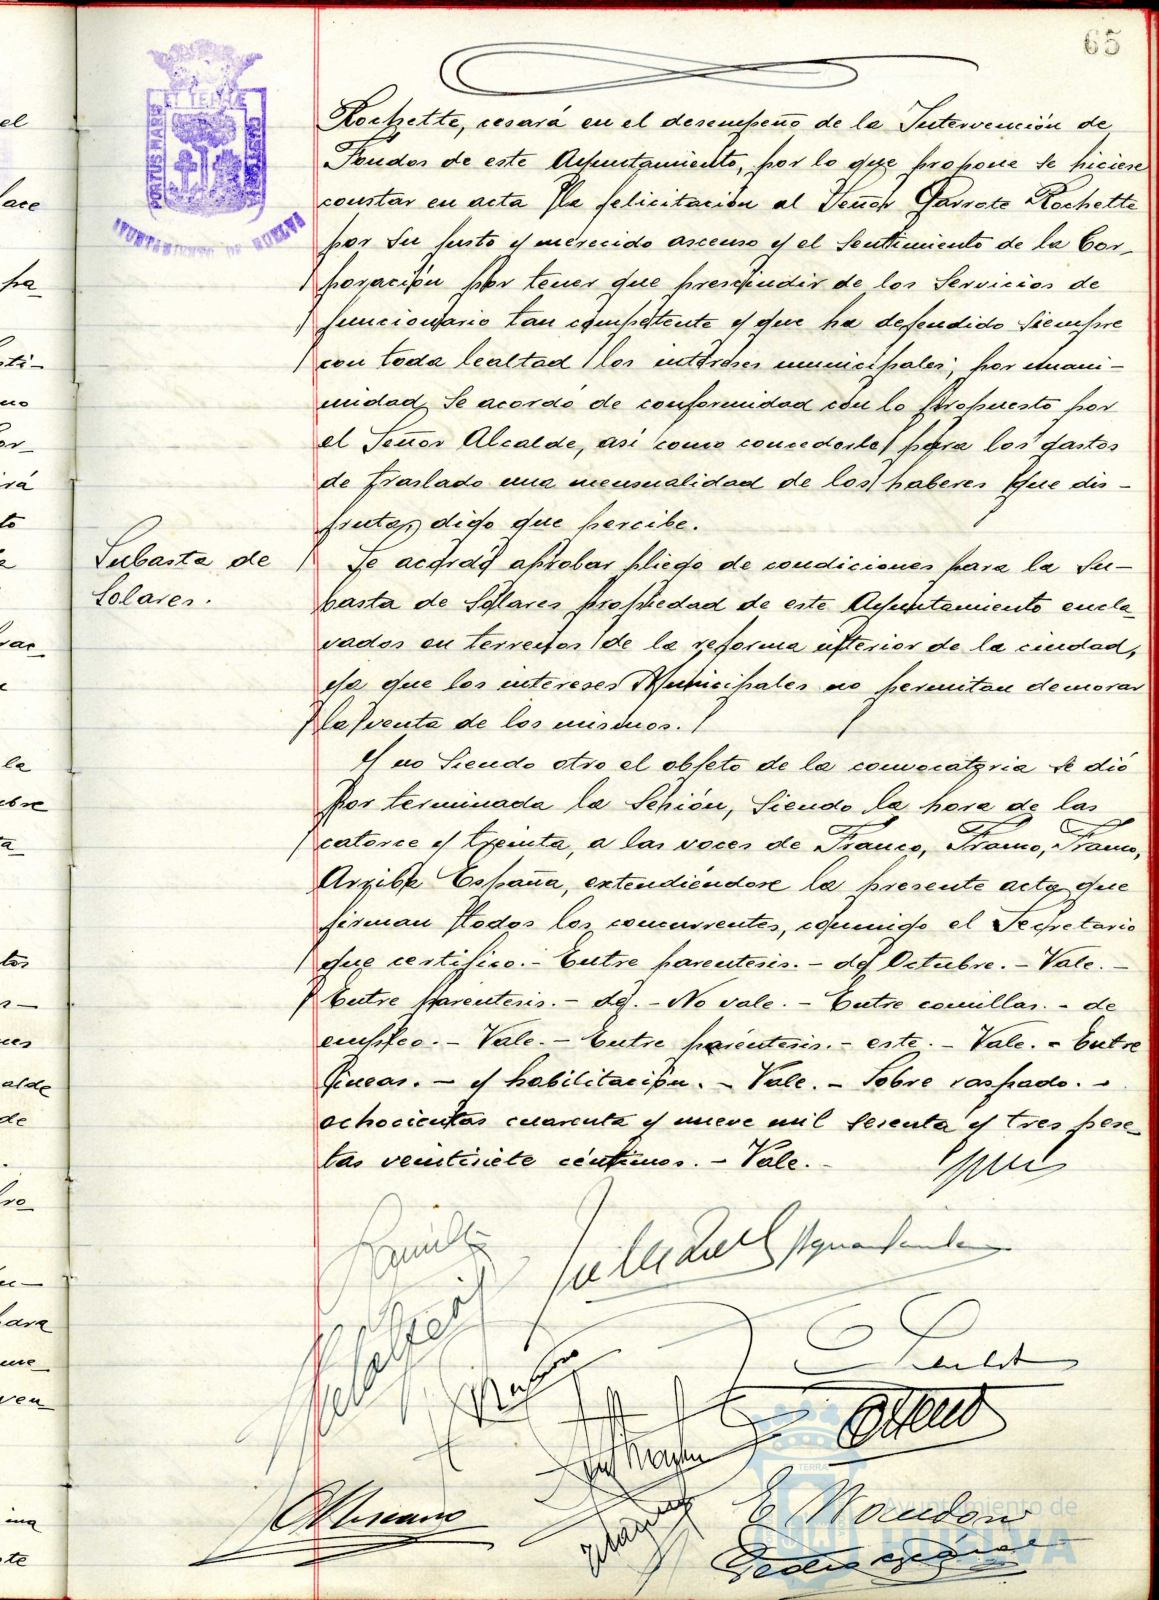 65
PORTUS MARIS ET TERRÆ CUSTODIA
AYUNTAMIENTO DE HUELVA
Rochette, cesará en el desempeño de la Intervención de
Fondos de este Ayuntamiento, por lo que propone se hiciese
constar en acta la felicitación al Señor Garrote Rochette
por su justo y merecido ascenso y el sentimiento de la Cor-
poración por tener que prescindir de los servicios de
funcionario tan competente y que ha defendido siempre
con toda lealtad los intereses municipales; por unani-
midad se acordó de conformidad con lo propuesto por
el Señor Alcalde, así como concederle para los gastos
de traslado una mensualidad de los haberes que dis-
fruta, digo que percibe.
Subasta de
Solares.
Se acordó aprobar pliego de condiciones para la su-
basta de Solares propiedad de este Ayuntamiento encla-
vados en terrenos de la reforma interior de la ciudad,
ya que los intereses Municipales no permitan demorar
la venta de los mismos.
Y no siendo otro el objeto de la convocatoria se dió
por terminada la sesión, siendo la hora de las
catorce y treinta, a las voces de Franco, Franco, Franco,
Arriba España, extendiéndose la presente acta que
firman todos los concurrentes, conmigo el Secretario
que certifico.- Entre parentesis.- de Octubre.- Vale.-
Entre paréntesis.- de.- No vale.- Entre comillas.- de
empleo.- Vale.- Entre paréntesis.- este.- Vale.- Entre
líneas.- y habilitación.- Vale.- Sobre raspado.-
ochocientas cuarenta y nueve mil sesenta y tres pese-
tas veintisiete céntimos.- Vale.-
E. Mandoni
Ayuntamiento de
HUELVA